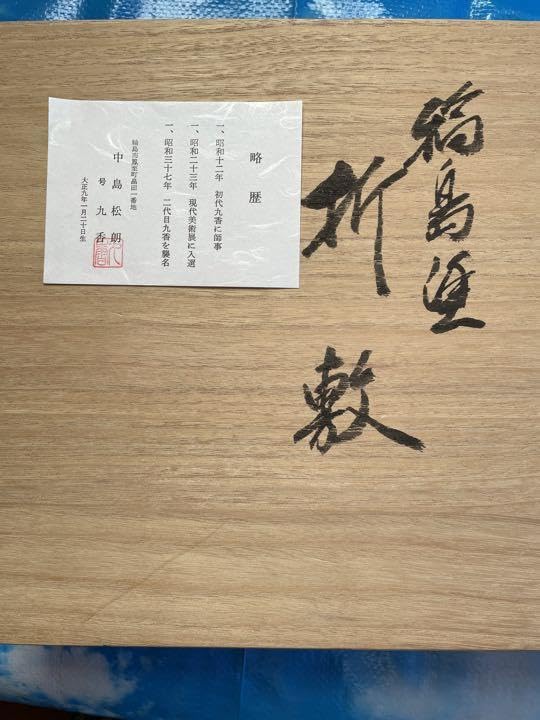 輪島塗
折敷
略歴
一、昭和十二年 初代九香に師事
一、昭和二十三年 現代美術展に入選
一、昭和三十七年 二代目九香を襲名
輪島市鳳至町畠田一番地
中島松朗
号 九香
大正九年一月二十日生